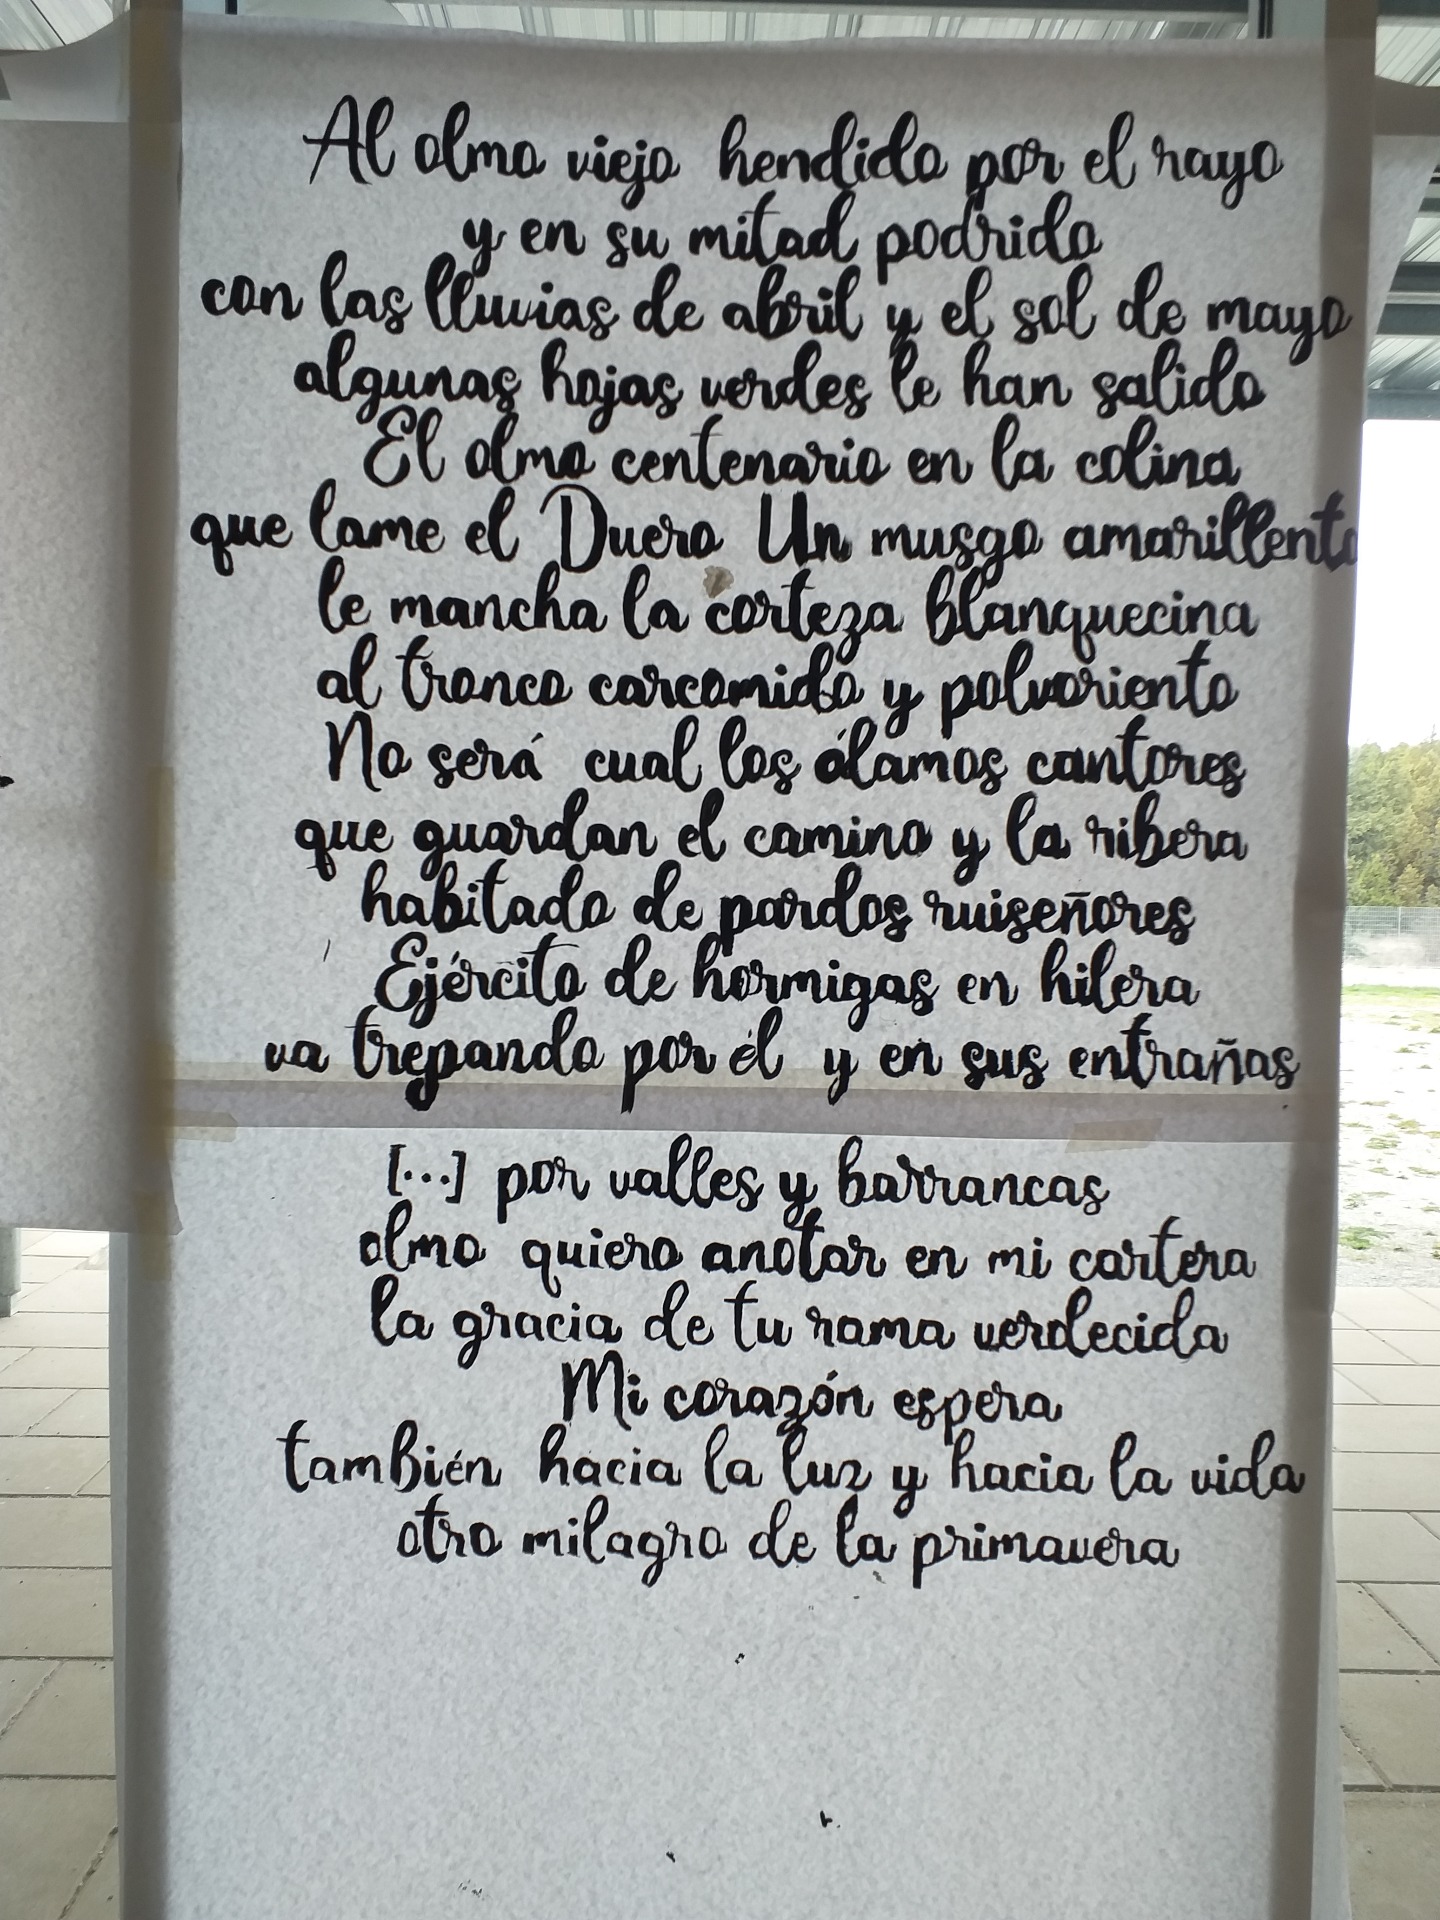 Al olmo viejo hendido por el rayo
y en su mitad podrido
con las lluvias de abril y el sol de mayo
algunas hojas verdes le han salido
El olmo centenario en la colina
que lame el Duero Un musgo amarillento
le mancha la corteza blanquecina
al tronco carcomido y polvoriento
No será cual los álamos cantores
que guardan el camino y la ribera
habitado de pardos ruiseñores
Ejército de hormigas en hilera
va trepando por él y en sus entrañas
[...] por valles y barrancas
olmo quiero anotar en mi cartera
la gracia de tu rama verdecida
Mi corazón espera
también hacia la luz y hacia la vida
otro milagro de la primavera